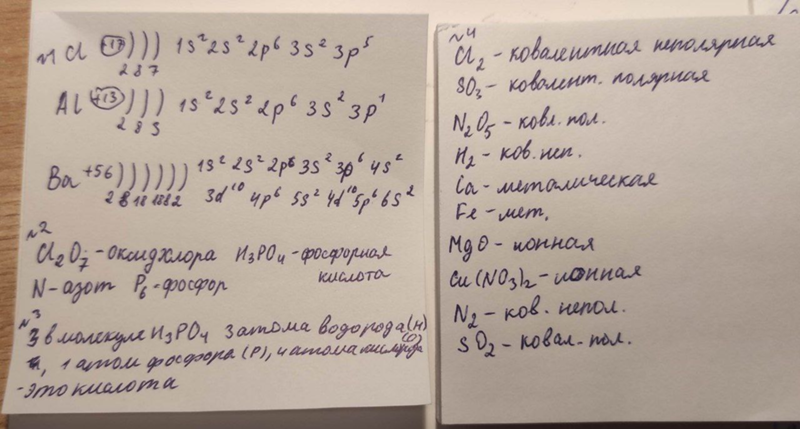 №1 Cl +17 ) ) ) 1s² 2s² 2p⁶ 3s² 3p⁵
2 8 7
Al +13 ) ) ) 1s² 2s² 2p⁶ 3s² 3p¹
2 8 3
Ba +56 ) ) ) ) ) ) 1s² 2s² 2p⁶ 3s² 3p⁶ 4s²
2 8 18 18 8 2 3d¹⁰ 4p⁶ 5s² 4d¹⁰ 5p⁶ 6s²
№2
Cl₂O₇ - оксид хлора H₃PO₄ - фосфорная
N - азот P₆ - фосфор кислота
№3
3 в молекуле H₃PO₄ 3 атома водорода (H)
1 атом фосфора (P), 4 атома кислорода (O)
- это кислота
№4
Cl₂ - ковалентная неполярная
SO₃ - ковалент. полярная
N₂O₅ - ковл. пол.
H₂ - ков. неп.
Ca - металическая
Fe - мет.
MgO - ионная
Cu(NO₃)₂ - ионная
N₂ - ков. непол.
SO₂ - ковал. пол.